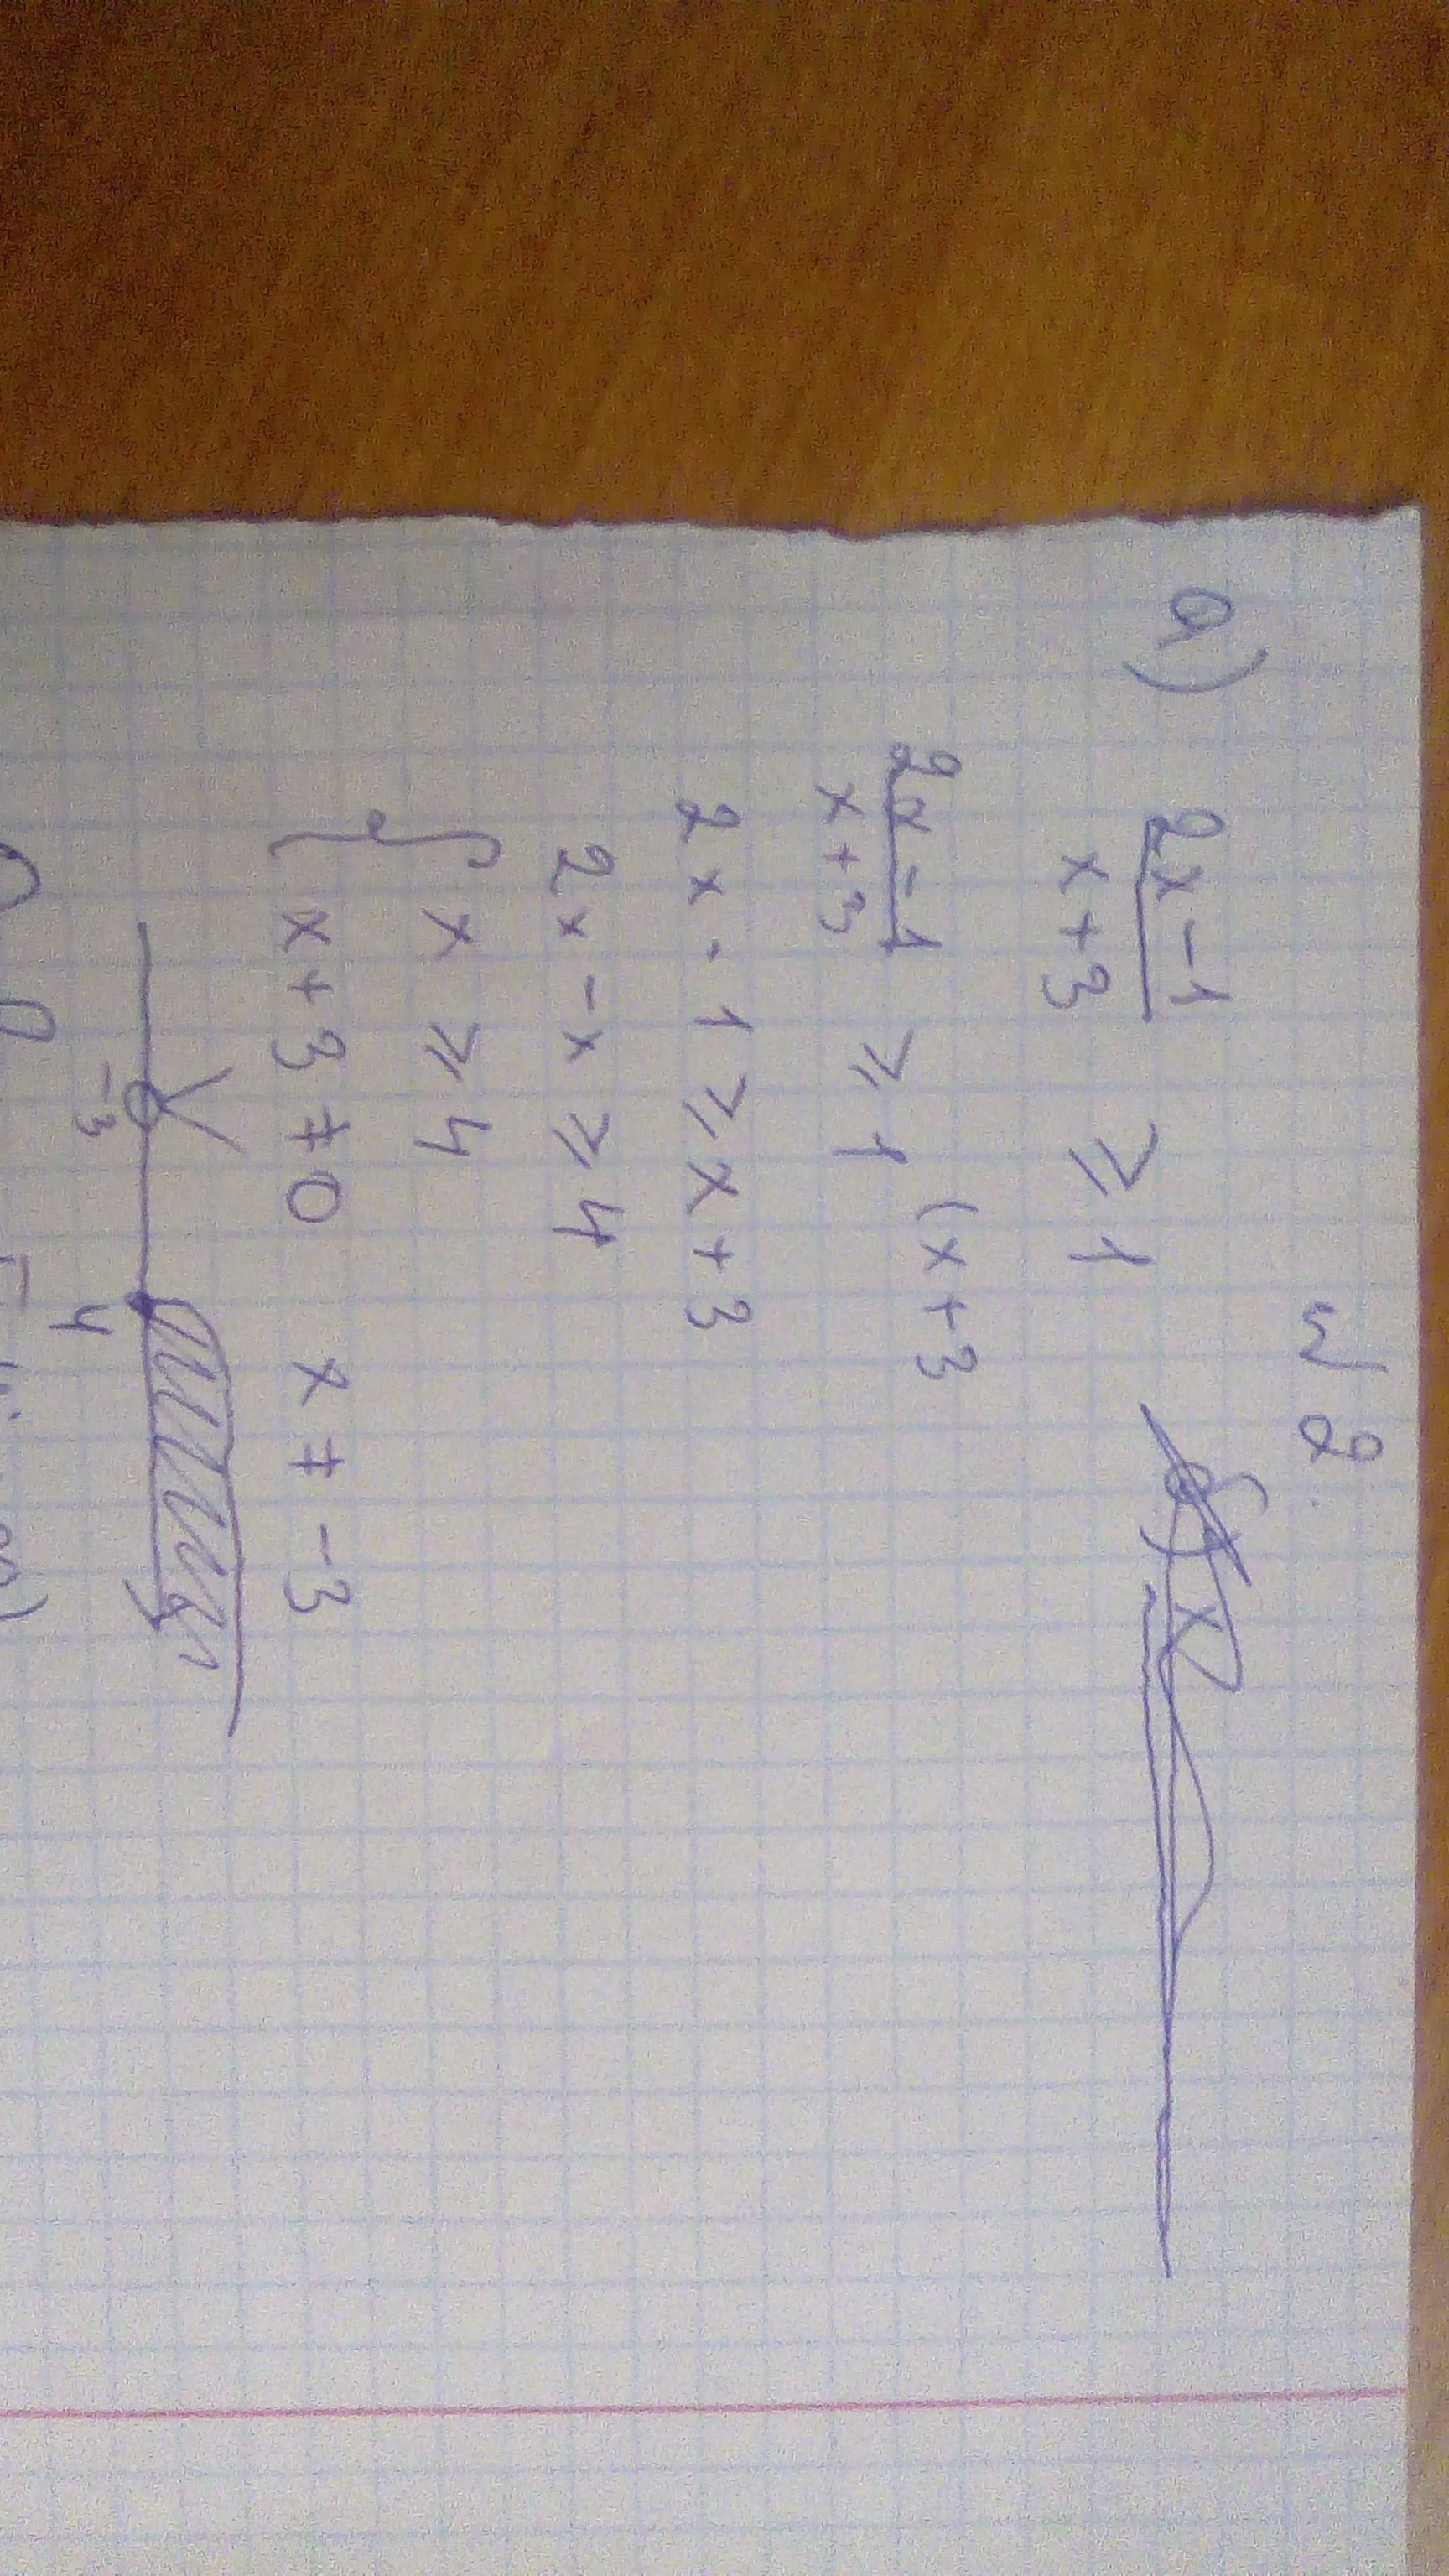 № 2.
а) 2x - 1 / x + 3 ≥ 1
2x - 1 / x + 3 ≥ 1 (x + 3
2x - 1 ≥ x + 3
2x - x ≥ 4
{ x ≥ 4
x + 3 ≠ 0 x ≠ -3
-3 4